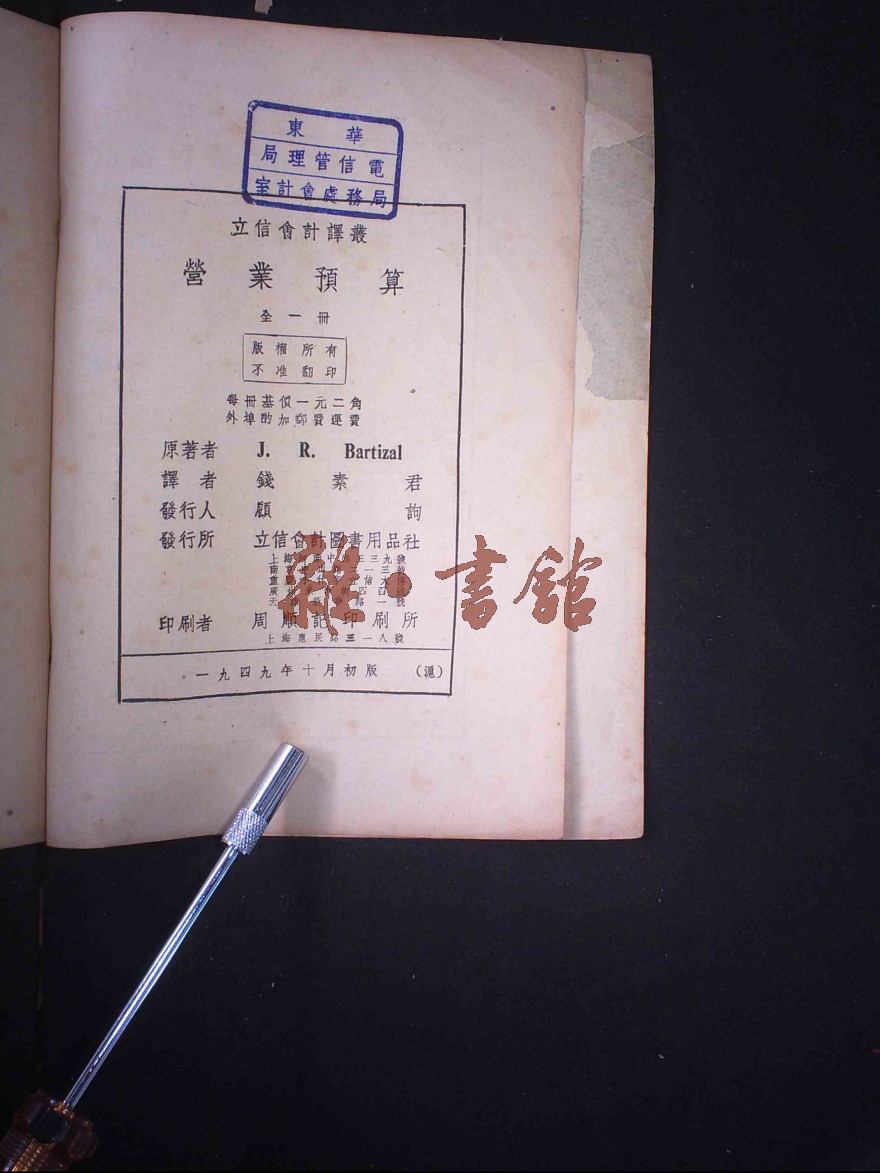 華東
電信管理局
局務處會計室
立信會計譯叢
營業預算
全一冊
版權所有
不准翻印
每冊基價一元二角
外埠酌加郵費運費
原著者 J. R. Bartizal
譯者 錢素君
發行人 顧詢
發行所 立信會計圖書用品社
印刷者 周順記印刷所
上海惠民路三一八號
一九四九年十月初版 (滬)
雜·書館